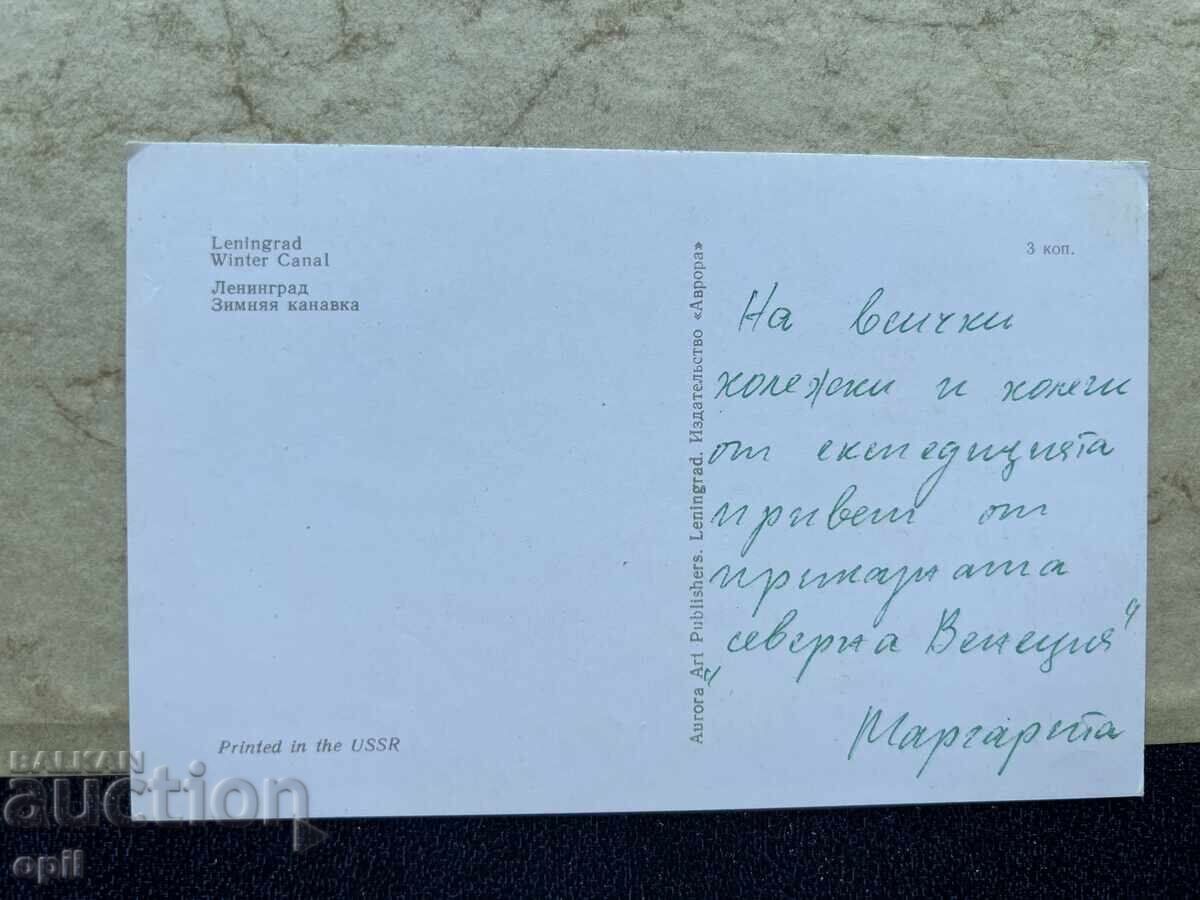 Leningrad
Winter Canal
Ленинград
Зимняя канавка
3 коп.
Aurora Art Publishers. Leningrad. Издательство «Аврора»
На всички
колежки и колеги
от експедицията
привет от
приказната
„северна Венеция“
Маргарета
Printed in the USSR
BALKAN
auction
opil